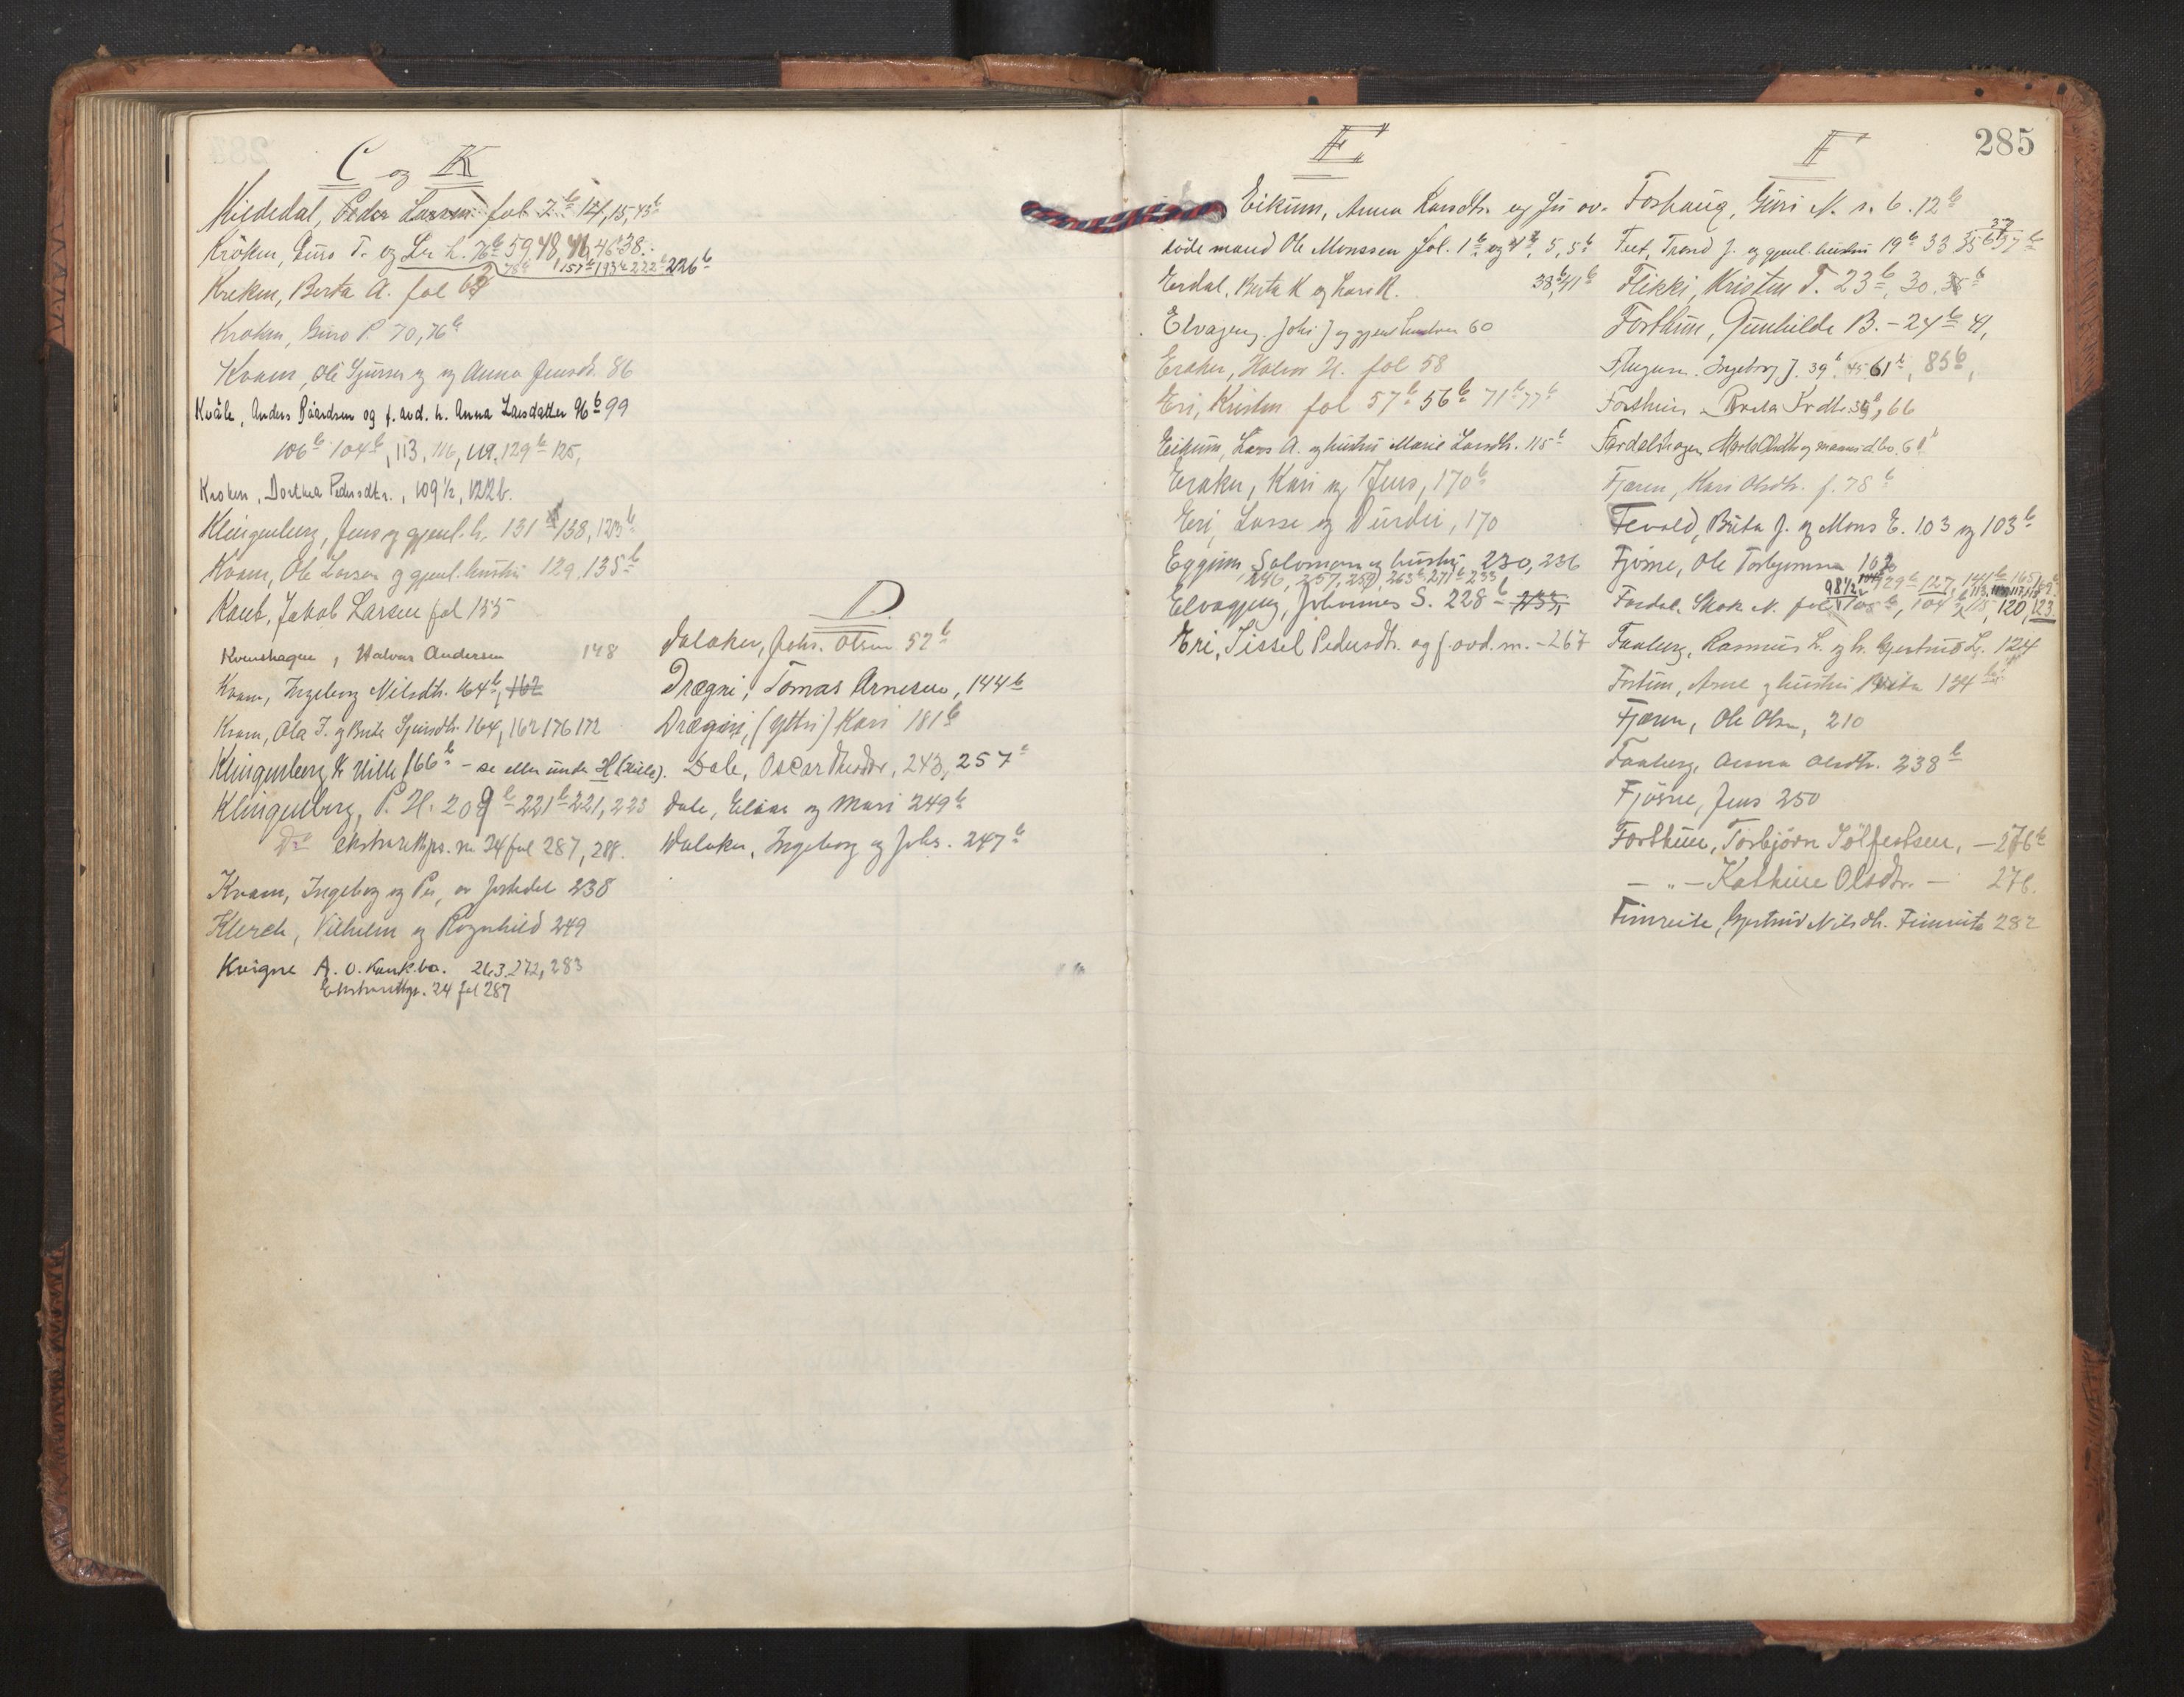 C og K
Kildedal, Peder Larsen fol 7b 14, 15, 43b
Kroken, Guro T. og Lr. L. 76b 59, 48, 46, 46b 38.
78b 157b 193b 222b 226b
Kroken, Berta A. fol 63
Kroken, Guro P. 70, 76b
Kvam, Ole Sjursen og Anna Jensdr. 86
Kvåle, Anders Båardsen og f. avd. h. Anna Larsdatter 96b 99
106b 104b, 113, 116, 119, 129b 125,
Kroken, Dorthea Pedersdtr., 109 1/2, 122b.
Klingenberg, Jens og gjenl. h. 131b 138, 123b
Kvam, Ole Larsen og gjenl. hustru 129, 135b
Kaut, Jakob Larsen fol 155
Kvenshagen, Halvar Andersen 148
Kvam, Ingeborg Nilsdtr. 164b, 162
Kvam, Ola I. og Brita Sjursdtr. 164, 162 176 172
Klingenberg & Hille 166b - se eller under H (Hille).
Klingenberg, P. H. 209b 221b 221, 223
Do ekstraretspr. nr 24 fol 287, 288.
Kvam, Ingeborg og Per, av Jostedal 238
Klerck, Vilhelm og Ragnhild 249
Kvigne A. O. Konk.bo. 263, 272, 283
Ekstraretspr. 24 fol 287
D.
Dalaker, Johs. Olsen 52b
Drægni, Tomas Arnesen, 144b
Drægni, (Yttri) Kari 181b
Dale, Oscar Theodor, 243, 257b
Dale, Elias og Mari 249b
Dalaker, Ingeborg og Johs. 247b
E
Eikum, Anna Larsdtr. og før av-
døde mand Ole Monssen fol. 1b og 4b, 5, 5b
Erdal, Berta K og Lars K. 38b, 41b
Elvagjeng, Johs J og gjenl hustru 60
Eraker, Halvor H. fol 58
Eri, Kristen fol 57b 56b 71b 77b
Eikum, Lars A. og hustru Marie Larsdtr. 115b
Eraker, Kari og Jens, 170b
Eri, Lasse og Durdei, 170
Eggum, Salomon og hustru, 230, 236
246, 257, 259, 263b, 271b 233
Elvagjeng, Johannes S. 228b 235,
Eri, Sissel Pedersdtr. og f. avd. m. - 267
F
285
Foshaug, Guri N. s. b. 12b
37
Feet, Trond J. og gjenl. hustru 19b 33 35 b 37b
Flikki, Kristen T. 23b, 30. 38b
Forthun, Gunhilde B. - 24b 41,
Flugum. Ingeborg J. 39b. 45. 61b, 85b,
Forthun, Brita Ardtr. 59b, 66
Fardalshagen, Marta Olsdtr og mannsdbo. 61b
Fjæren, Kari Olsdtr. f. 78b
Fevold, Brita J. og Mons E. 103 og 103b
Fjøsne, Ole Torbjørnsen 102
Fardal, Skak N. fol 105b, 104b, 115, 120, 123
Faaberg, Rasmus L. og h. Gjertrud L. 124
Fortun, Arne og hustru Brita 134b
Fjæren, Ole Olsen, 210
Faaberg, Anna Olsdtr. 238b
Fjøsne, Jens 250
Forthun, Torbjørn Sølfestsen, - 276b
- " - Kathrine Olsdtr. - 276.
Fimreite, Gjertrud Nilsdtr. Fimreite 282